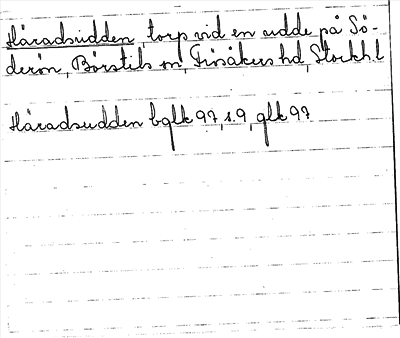 Häradsudden torp vid en udde på Sö-
derön, Börstils sn, Frösåkers hd, Stockh. l
Häradsudden bglk 97, s. 9, glk 97